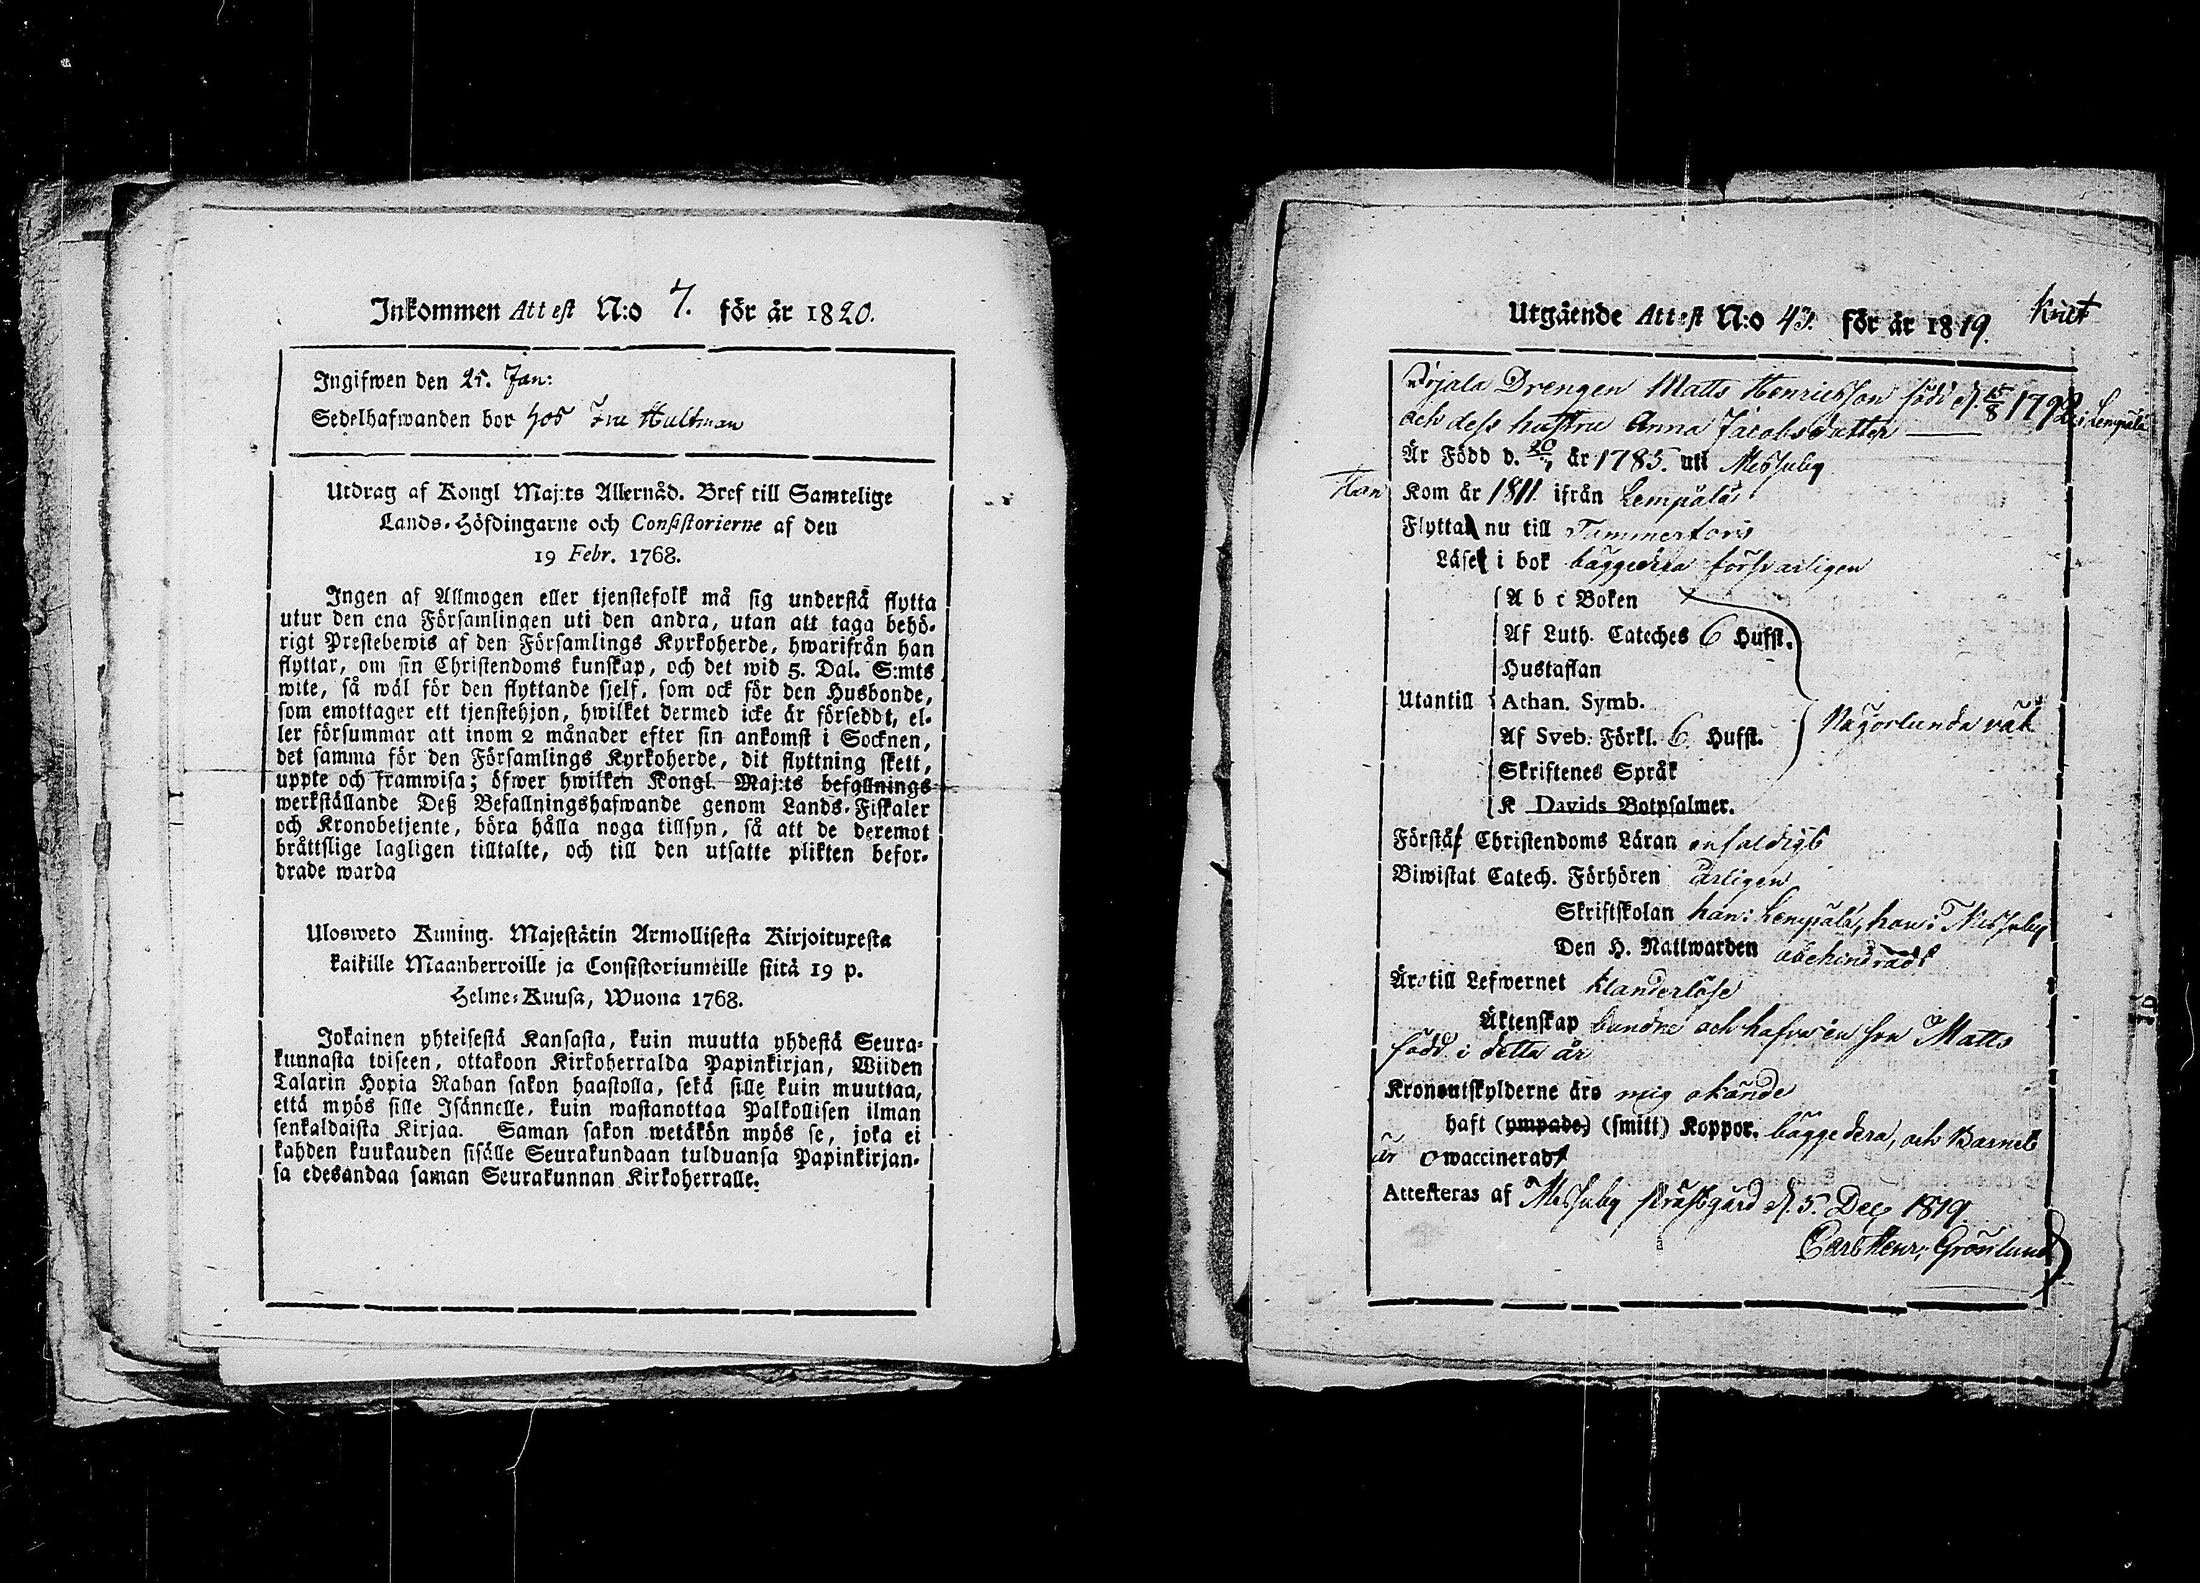 Inkommen Attest N:o 7. för år 1820.
Ingifwen den 25. Jan:
Sedelhafwanden bor hos Hultman
Utdrag af Kongl Maj:ts Allernåd. Bref till Samtelige
Lands-Höfdingarne och Consistorierne af den
19 Febr. 1768.
Ingen af Allmogen eller tjenstefolk må sig understå flytta
utur den ena Församlingen uti den andra, utan att taga behö-
rigt Prestebewis af den Församlings Kyrkoherde, hwarifrån han
flyttar, om sin Christendoms kunskap, och det wid 5. Dal. S:mts
wite, så wäl för den flyttande sjelf, som ock för den Husbonde,
som emottager ett tjenstehjon, hwilket dermed icke är försedbt, el-
ler försummar att inom 2 månader efter sin ankomst i Socknen,
det samma för den Församlings Kyrkoherde, dit flyttning skett,
uppte och framwisa; öfwer hwilken Kongl. Maj:ts befallnings
werkställande Deß Befallningshafwande genom Lands-Fiskaler
och Kronobetjente, böra hålla noga tillsyn, så att de deremot
bråttslige lagligen tilltalte, och till den utsatte plikten befor-
drade warda
Ulosweto Kuning. Majestätin Armollisesta Kirjoituxesta
kaikille Maanherroille ja Consistoriumeille siitä 19 p.
Helme-Kuusa, Wuona 1768.
Jokainen yhteisestä Kansasta, kuin muutta yhdestä Seura-
kunnasta toiseen, ottakoon Kirkoherralda Papinkirjan, Wiiden
Talarin Hopia Rahan sakon haastolla, sekä sille kuin muuttaa,
että myös sille Isännelle, kuin wastanottaa Palkollisen ilman
senkaldaista Kirjaa. Saman sakon wetäkön myös se, joka ei
kahden kuukauden sisälle Seurakundaan tulduansa Papinkirjan-
sa edesandaa saman Seurakunnan Kirkoherralle.
Utgående Attest N:o 43. för år 1819.
Drengen Matts Henricsson född d. 15/8 1792 i Lempälä
och dess hustru Anna Jacobsdotter
Är Född d. år 1785. uti Messuby
Han Kom år 1811 ifrån Lempälä
Flytta nu till Tammerfors
Läse i bok bäggedera försvarligen
A b c Boken
Af Luth. Cateches 6 Hufst.
Hustaflan
Utantill Athan. Symb.
Af Sveb. Förkl. 6 Hufst. Någorlunda väl
Skriftenes Språk
K Davids Botpsalmer.
Förstå Christendoms Läran enfaldigt
Biwistat Catech. Förhören årligen
Skriftskolan han i Lempälä, hon i Messuby
Den H. Nattwarden obehindradt
Äro till Lefwernet klanderlöse
Äktenskap bundne och hafva en son Matts
född i detta år
Kronoutskylderne äro mig okände
haft (ympade,) (smitt) Koppor. bäggedera, och Barnet
är owaccineradt
Attesteras af Messuby prästgård d. 5. Dec 1819
Carl Henr. Grönlund